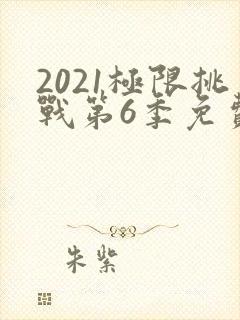 2021極限挑
戰第6季免費
朱紫